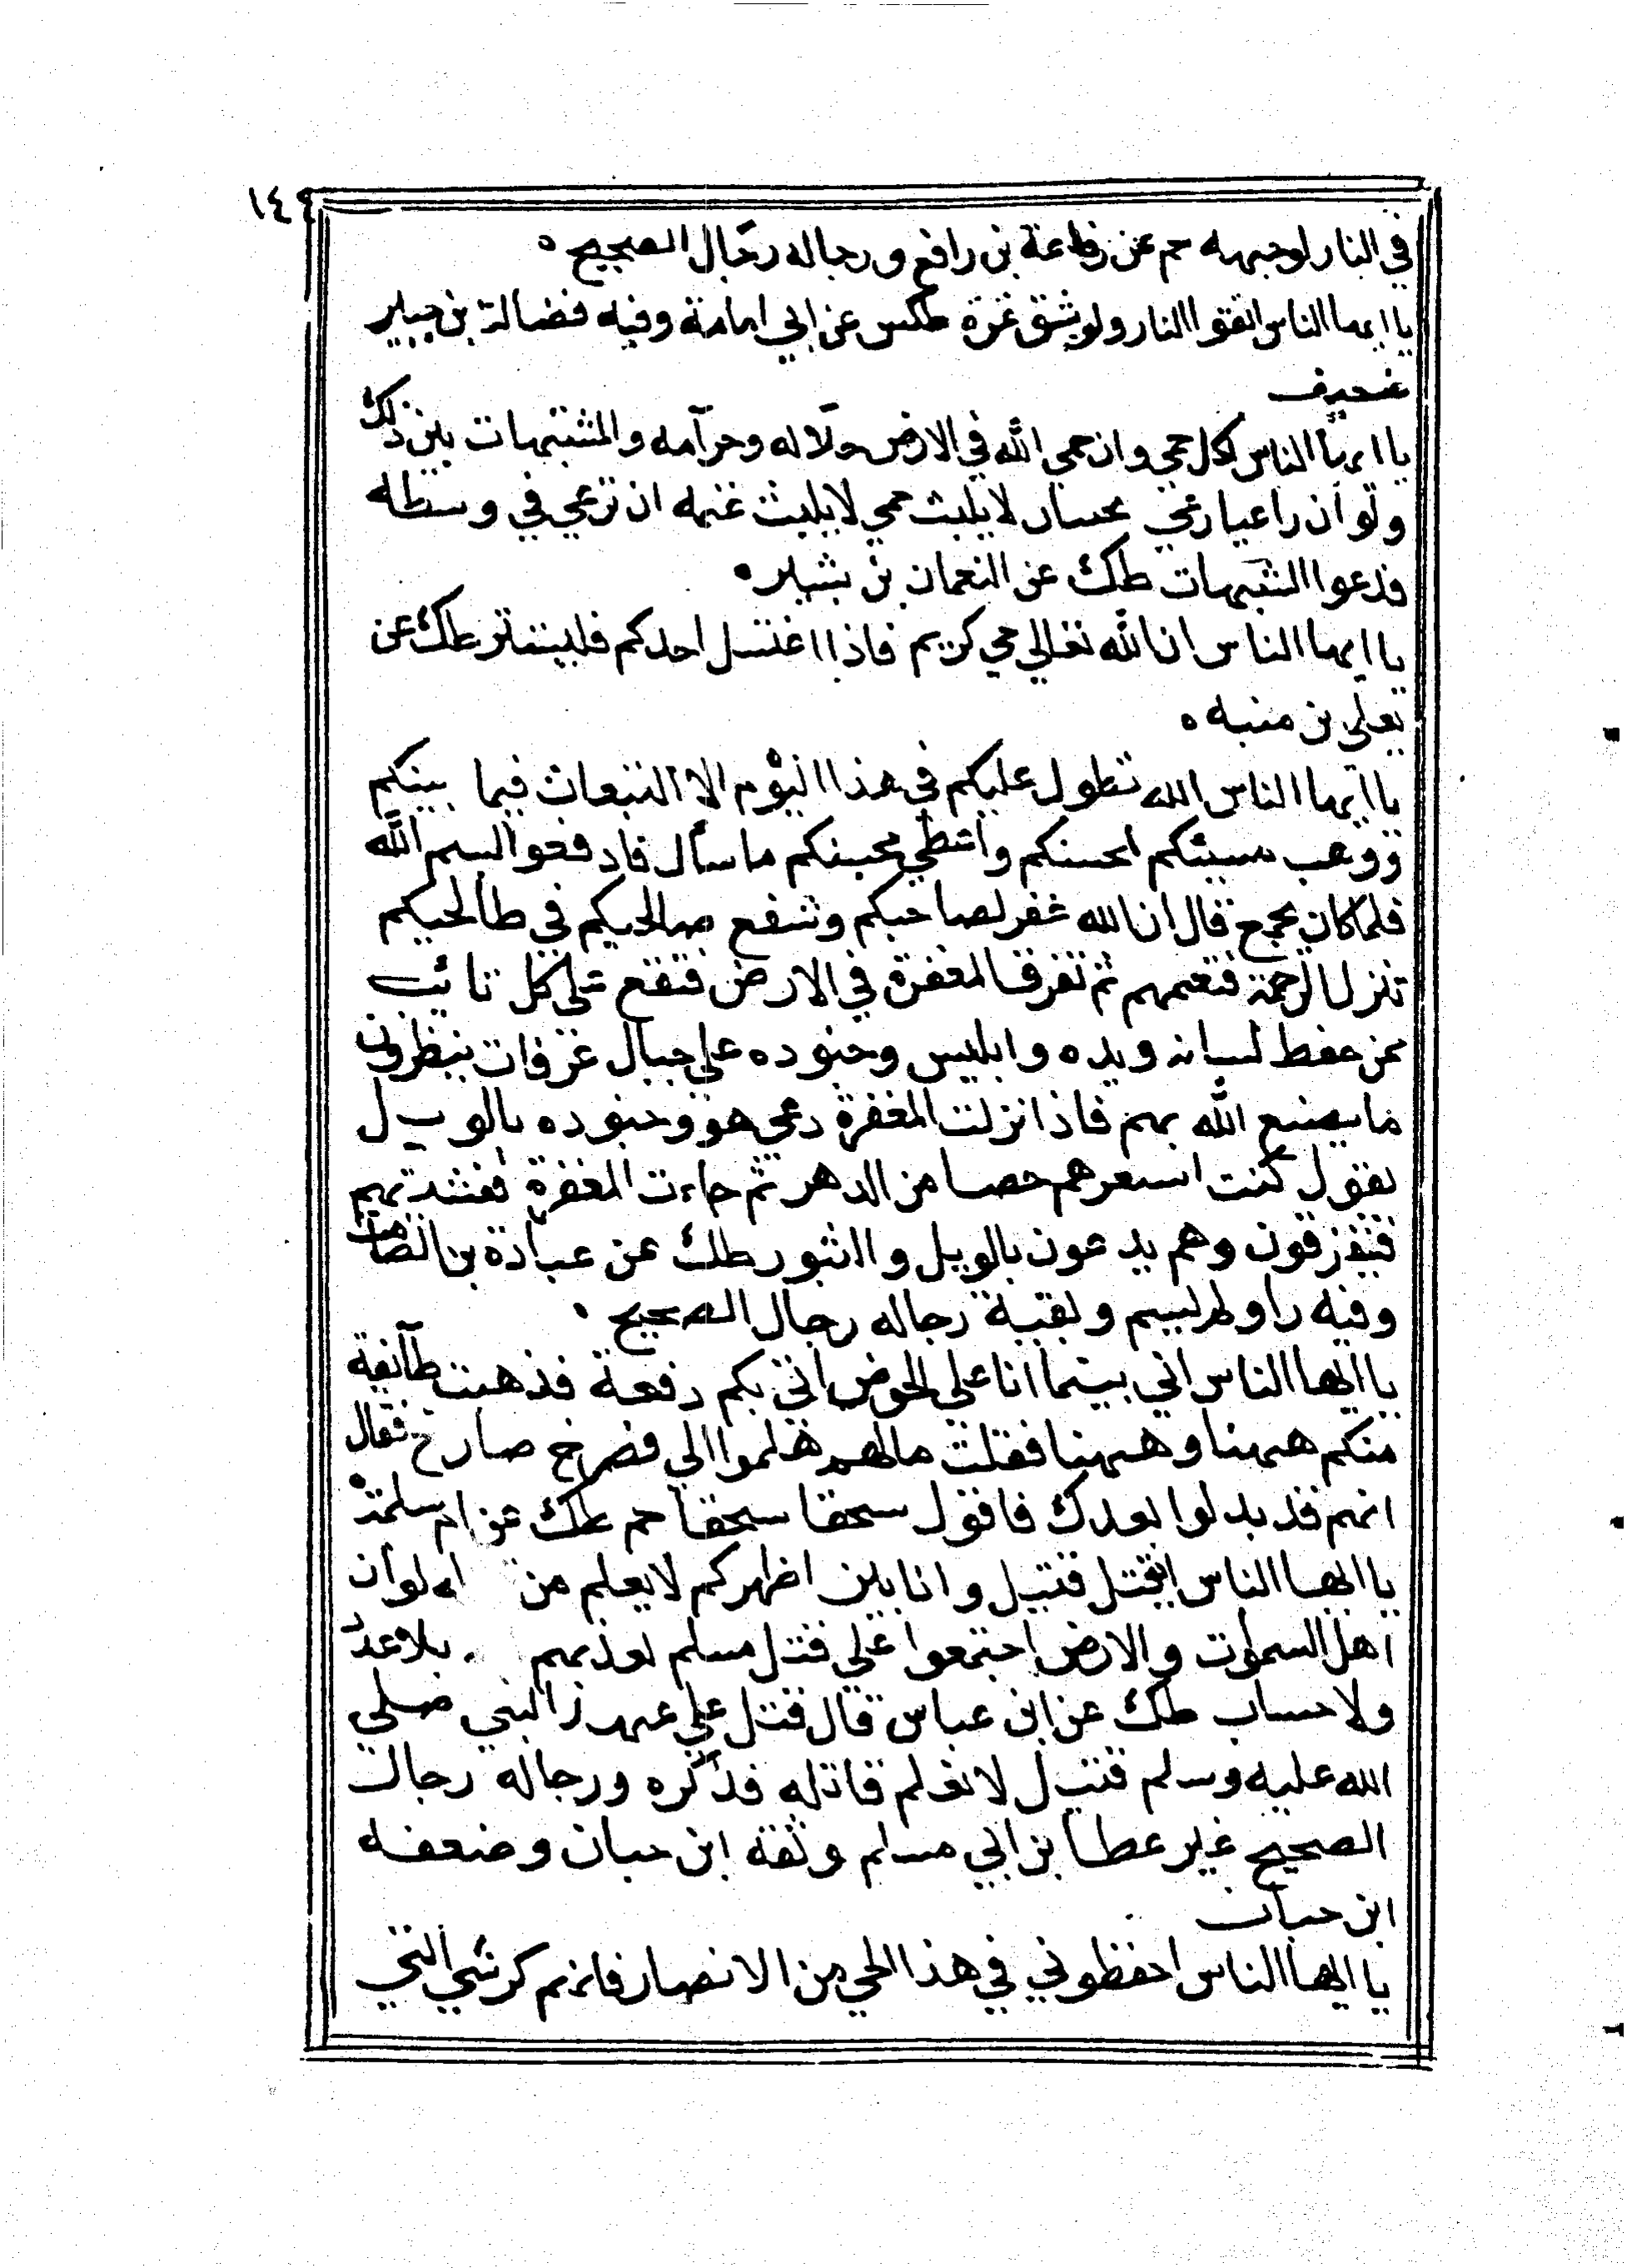 ١٤٩
في النار لوجهه حم عن رفاعة بن رافع ورجاله رجال الصحيح ه
يا ايها الناس اتقوا النار ولو بشق تمرة طكس عن ابي امامة وفيه فضالة بن جبير
ضعيف
يا ايها الناس لكل حمي وان حمي الله في الارض حلاله وحرامه والمشتبهات بين ذلك
ولو ان راعيا رعي بحساب لا يلبث حمي لا يلبث غنمه ان ترعي في وسطه
فدعوا الشبهات طك عن النعمان بن بشير ه
يا ايها الناس ان الله تعالي حي كريم فاذا اغتسل احدكم فليستتر طك عن
يعلي بن منبه ه
يا ايها الناس الله تطول عليكم في هذا اليوم الا التبعات فيما بينكم
ووهب مسيئكم لمحسنكم واعطي محسنكم ما سأل فادفعوا بسم الله
فلما كان بجمع قال ان الله غفر لصاحبكم وشفع صالحيكم في طالحيكم
تنزل الرحمة فتعمهم ثم تفرق المغفرة في الارض فتقع علي كل تائب
ممن حفظ لسانه ويده وابليس وجنوده علي جبال عرفات ينظرون
ما يصنع الله بهم فاذا نزلت المغفرة دعي هو وجنوده بالويل
يقول كنت استعرهم حصا من الدهر ثم جاءت المغفرة فغشيتهم
فتفرقون وهم يدعون بالويل والثبور طك عن عبادة بن الصامت
وفيه راو لم يسم وبقية رجاله رجال الصحيح ه
يا ايها الناس اني بينما انا علي الحوض اتي بكم رفعة فذهبت طآئفة
منكم ههنا وههنا فقلت ما لهم هلموا الي فصرخ صارخ فقال
انهم قد بدلوا بعدك فاقول سحقا سحقا حم طك عن ام سلمة ه
يا ايها الناس ايقتل قتيل وانا بين اظهركم لا يعلم من له لو ان
اهل السموات والارض اجتمعوا علي قتل مسلم لعذبهم بلا عدد
ولا حساب طك عن ابن عباس قال قتل علي عهد النبي صلي
الله عليه وسلم قتيل لا نعلم قاتله فذكره ورجاله رجال
الصحيح غير عطا بن ابي مسلم وثقه ابن حبان وضعفه
ابن حبان
يا ايها الناس احفظوني في هذا الحي من الانصار فانهم كرشي التي